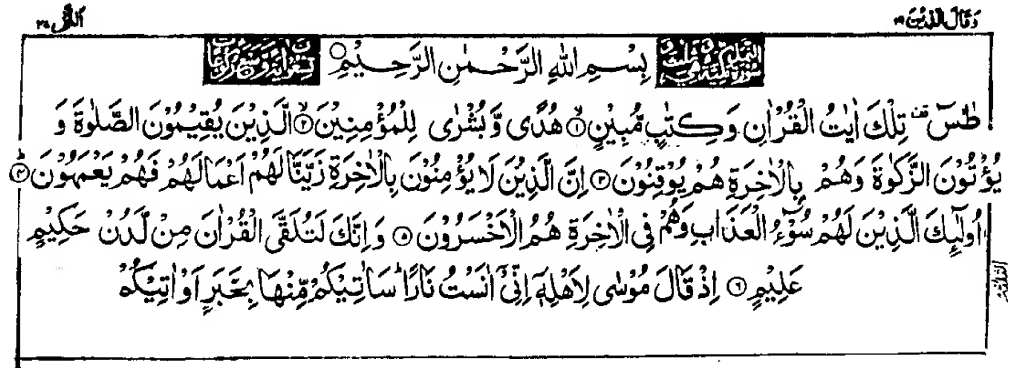 وقال الذین ١٩ النمل ٢٧
بِسْمِ اللهِ الرَّحْمٰنِ الرَّحِيْمِ
طٰسٓ تِلْكَ اٰيٰتُ الْقُرْاٰنِ وَكِتَابٍ مُّبِيْنٍ ۝١ هُدًى وَّبُشْرٰى لِلْمُؤْمِنِيْنَ ۝٢ الَّذِيْنَ يُقِيْمُوْنَ الصَّلٰوةَ وَ
يُؤْتُوْنَ الزَّكٰوةَ وَهُمْ بِالْاٰخِرَةِ هُمْ يُوْقِنُوْنَ ۝٣ اِنَّ الَّذِيْنَ لَا يُؤْمِنُوْنَ بِالْاٰخِرَةِ زَيَّنَّا لَهُمْ اَعْمَالَهُمْ فَهُمْ يَعْمَهُوْنَ ۝٤
اُولٰٓئِكَ الَّذِيْنَ لَهُمْ سُوْٓءُ الْعَذَابِ وَهُمْ فِي الْاٰخِرَةِ هُمُ الْاَخْسَرُوْنَ ۝٥ وَاِنَّكَ لَتُلَقَّى الْقُرْاٰنَ مِنْ لَّدُنْ حَكِيْمٍ
عَلِيْمٍ ۝٦ اِذْ قَالَ مُوْسٰى لِاَهْلِهٖٓ اِنِّيْٓ اٰنَسْتُ نَارًا ؕ سَاٰتِيْكُمْ مِّنْهَا بِخَبَرٍ اَوْ اٰتِيْكُمْ